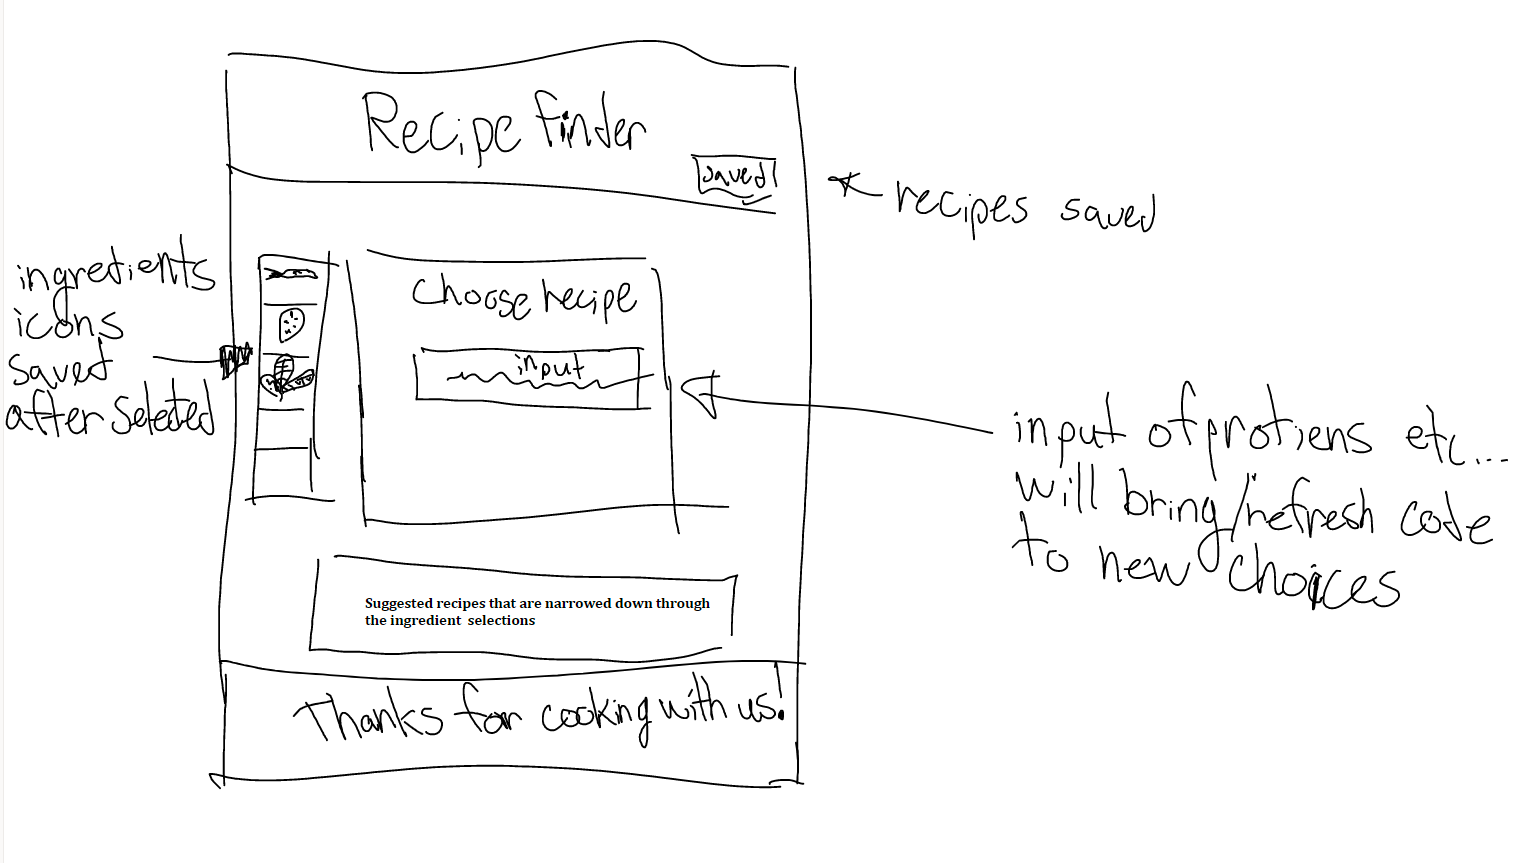 Recipe finder
saved
recipes saved
ingredients
icons
saved
after seleted
Choose recipe
input
input of protiens etc...
will bring/refresh code
to new choices
Suggested recipes that are narrowed down through
the ingredient selections
Thanks for cooking with us!